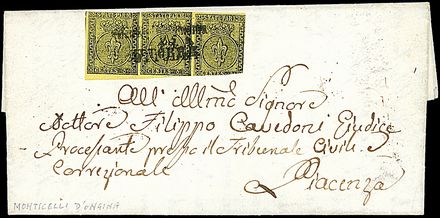 STATI PARM. STATI PARM. STATI PARM.
CENTES. 5 CENTES. 5 CENTES. 5
All' Illmo Signore
Dottore Filippo Cavedoni Giudice
Processante presso il Tribunale Civile
Correzionale
Piacenza
MONTICELLI D'ONGINA